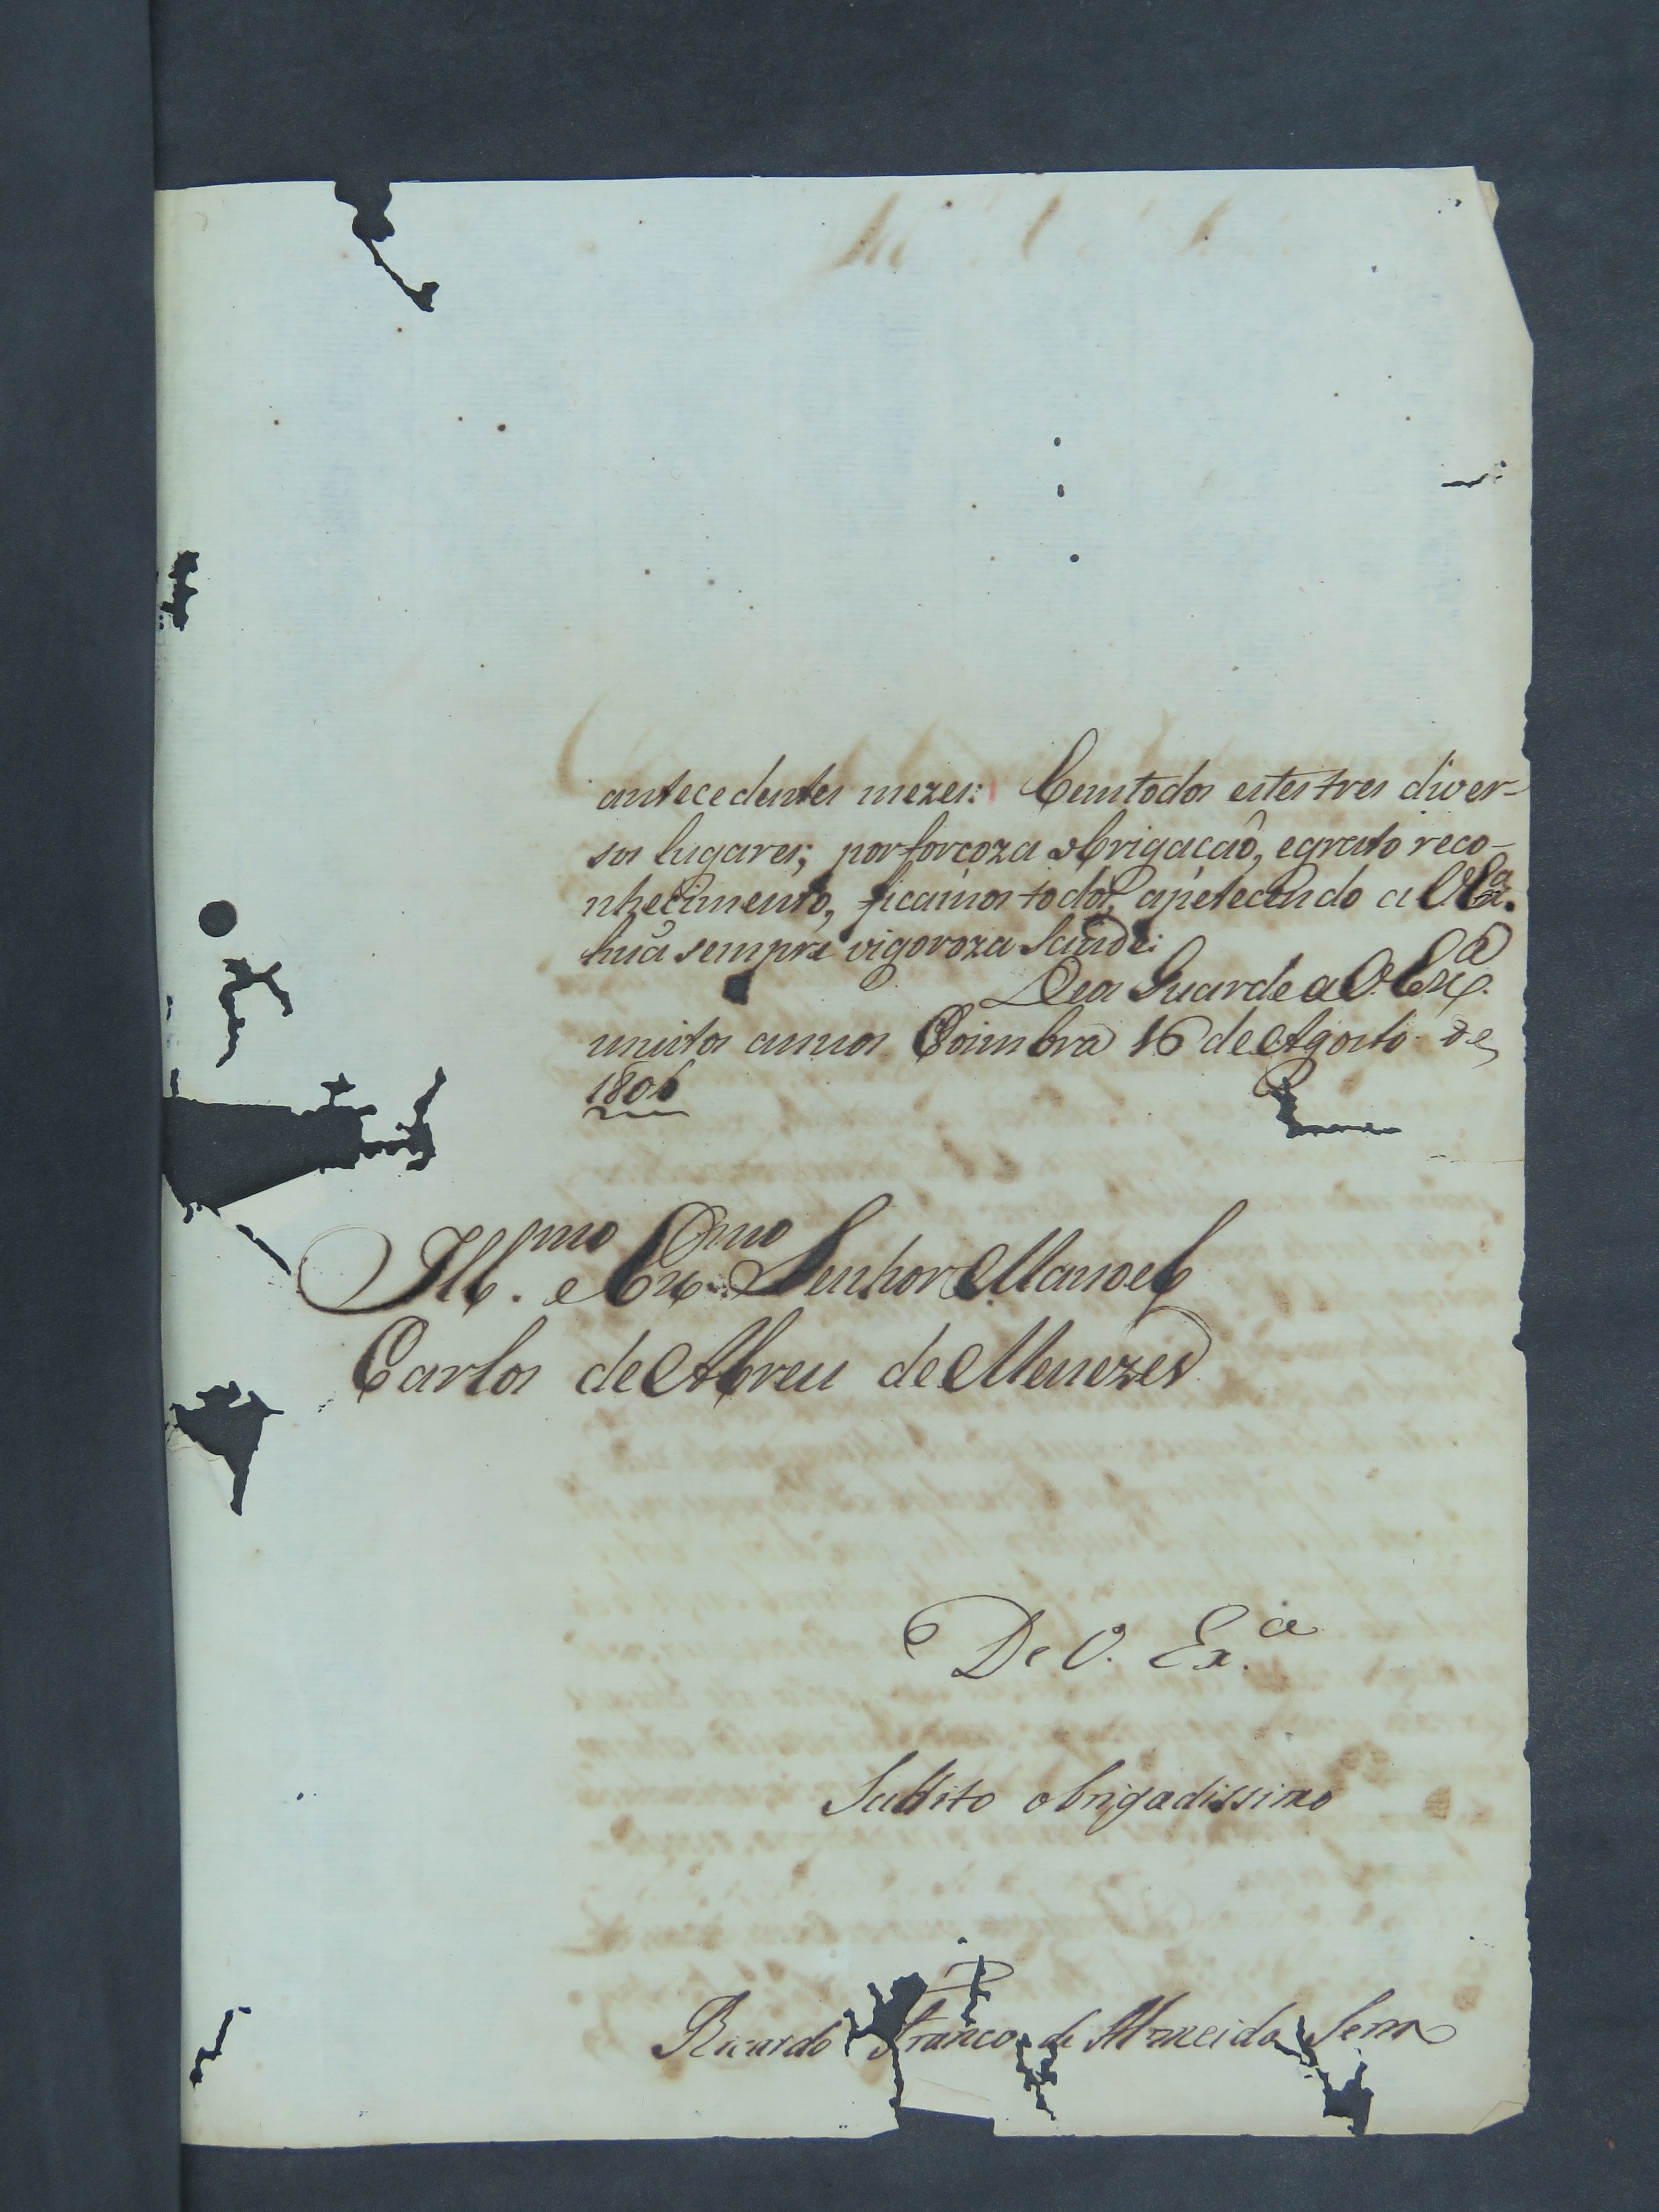 antecedentes mezes: Eemtodos estes tres diver-
sos lugares; por forçoza obrigaçaô, egrato reco-
nhecimento, ficamos todos, apetecendo a V.Exª.
huã sempre vigoroza saude:
Deos Guarde a V. Exª.
muitos annos Coimbra 16 de Agosto de
1806
Illmo. e Exmo. Senhor Manoel
Carlos de Abreu de Menezes
De V. Ex.ª
Subdito obrigadissimo
Ricardo Franco de Almeida Serra